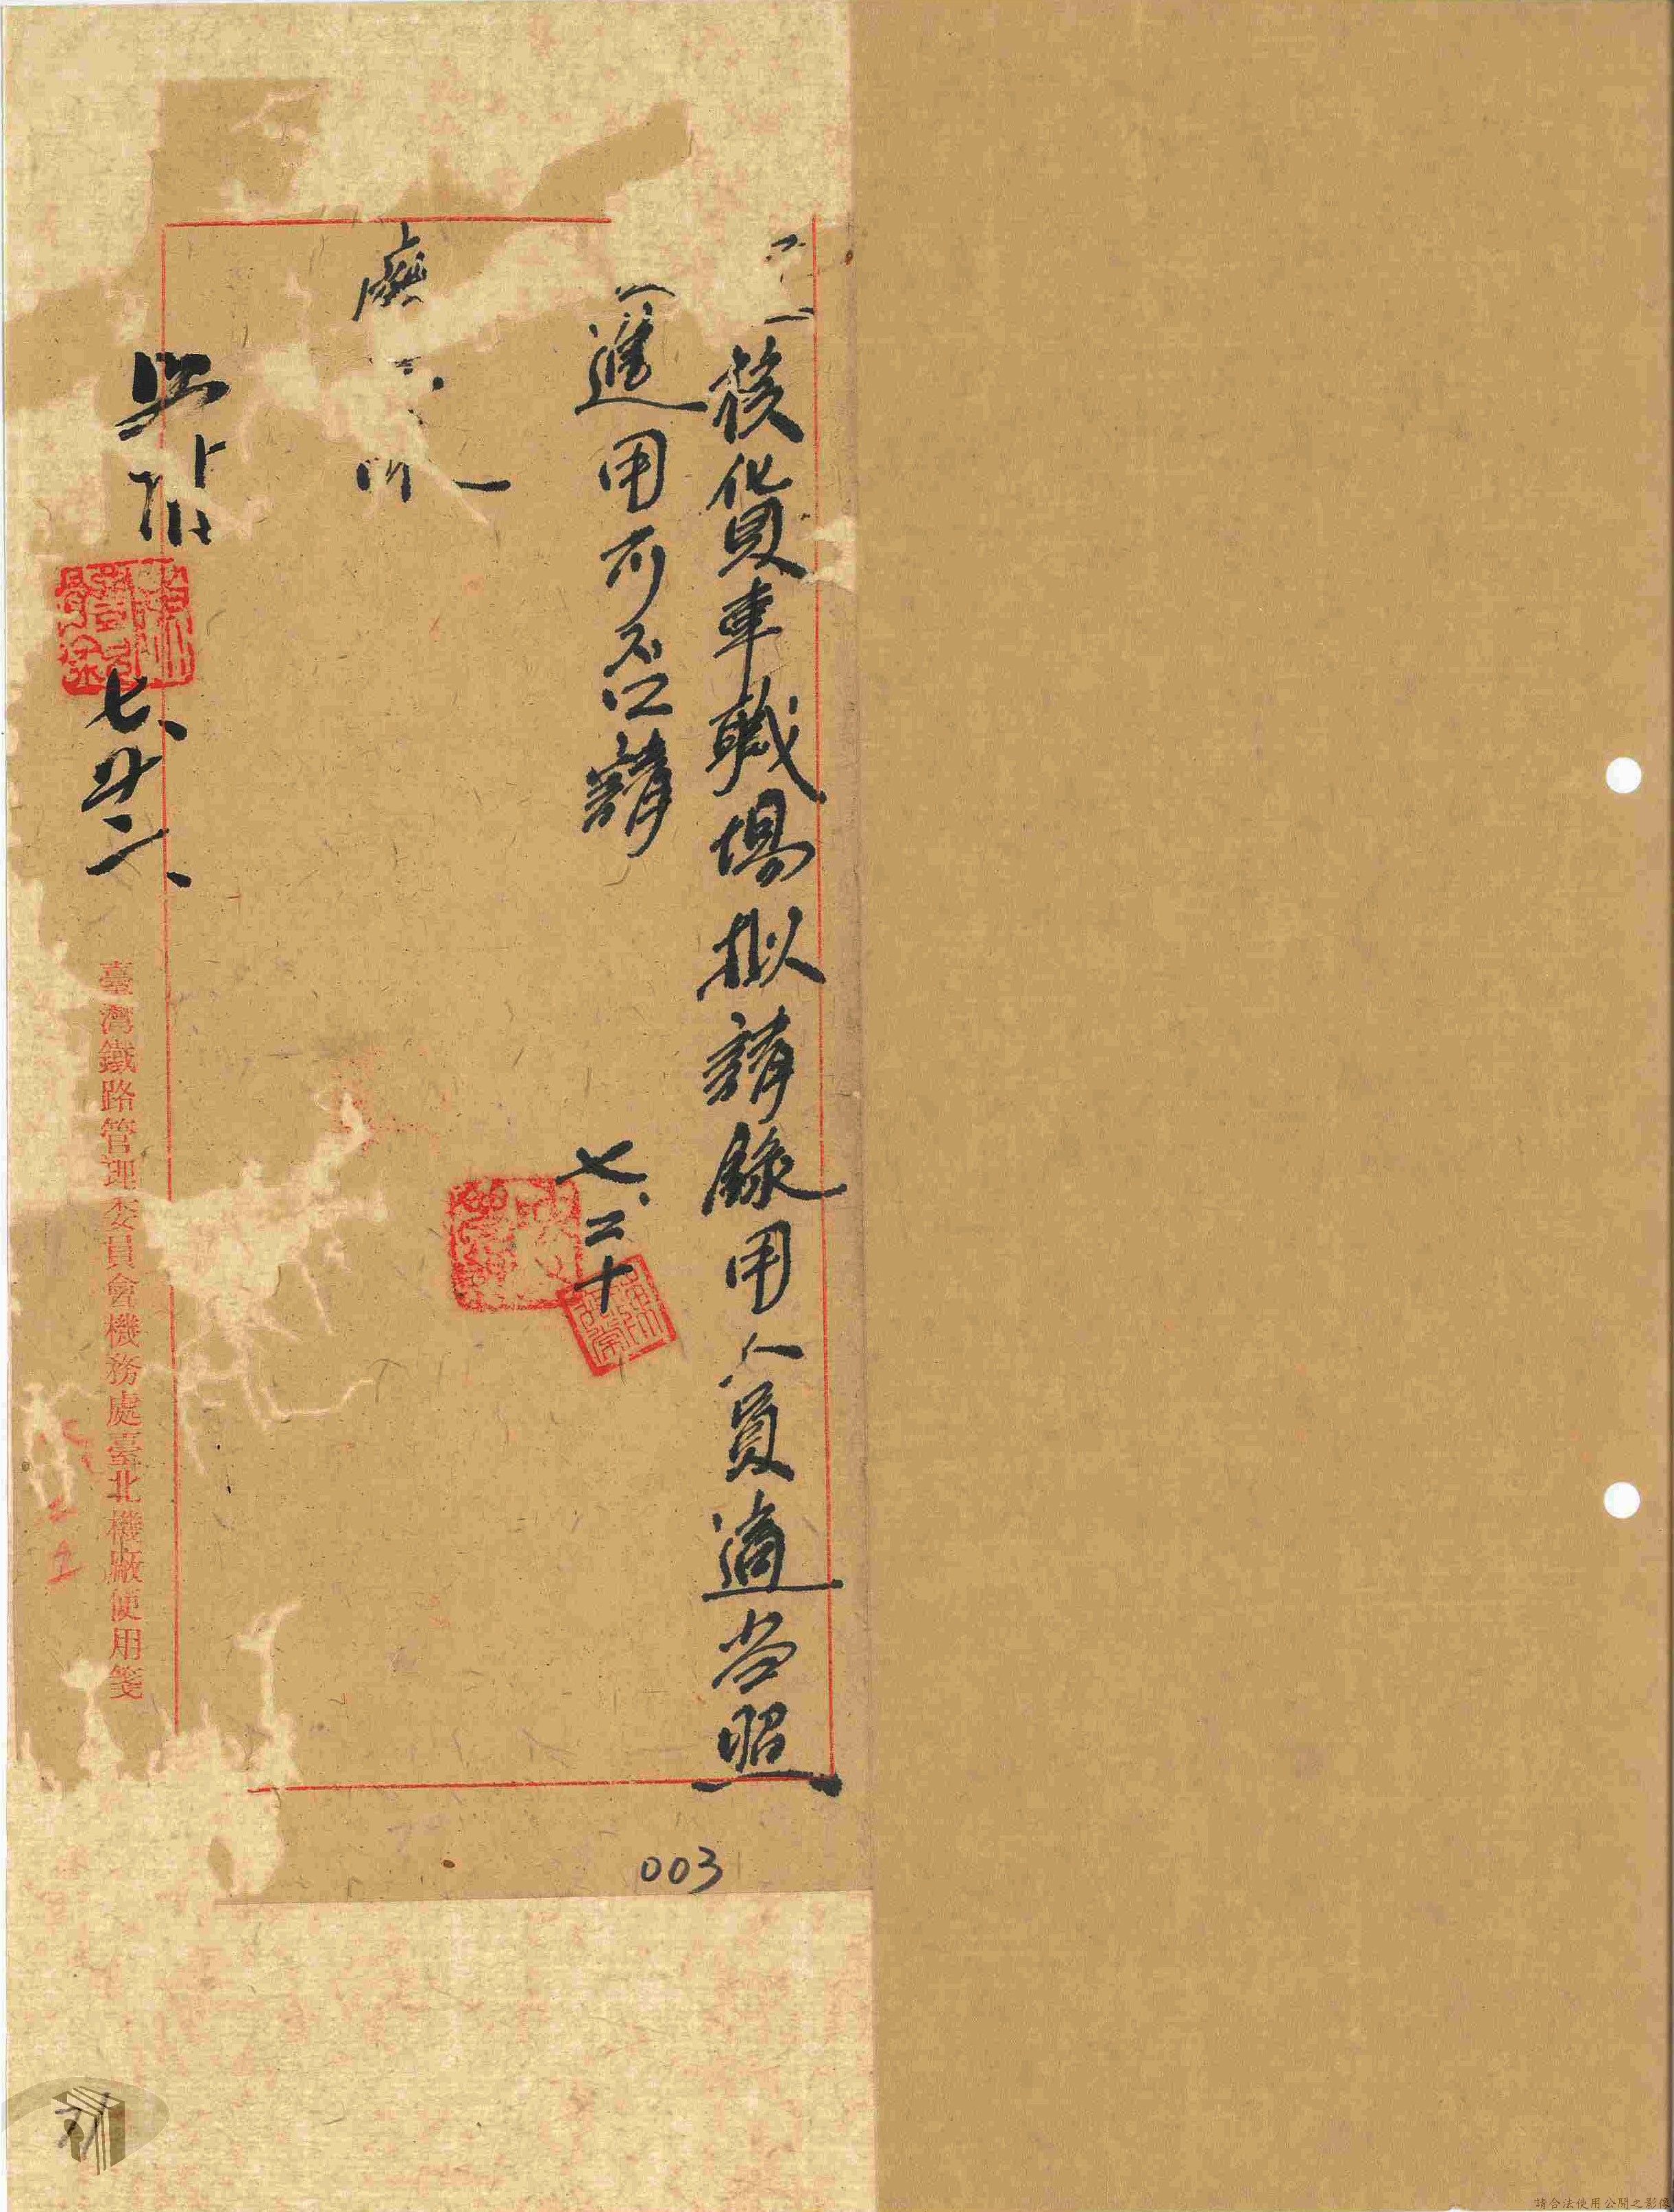 該貨車職場擬請錄用人員適当照
進用可否請
七、二十
廠
照准
七、廿二、
臺灣鐵路管理委員會機務處臺北機廠使用箋
003
請合法使用公開之影像